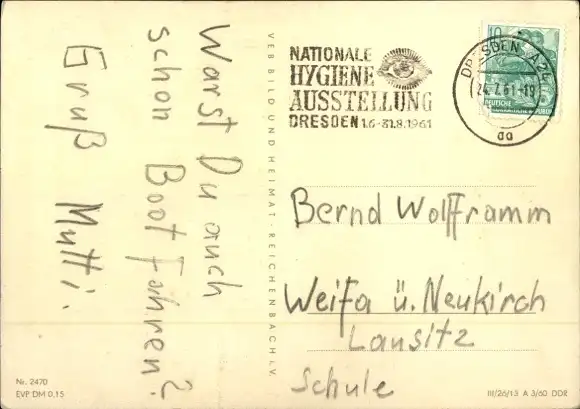 Warst Du auch
schon Boot fahren?
Gruß Mutti.
VEB BILD UND HEIMAT · REICHENBACH I. V.
NATIONALE
HYGIENE
AUSSTELLUNG
DRESDEN 1.6.-31.8.1961
DRESDEN A 24
24.7.61.-19
aa
10
DEUTSCHE
Bernd Wolfframm
Weifa ü. Neukirch
Lausitz
Schule
Nr. 2470
EVP DM 0.15
III/26/13 A 3/60 DDR